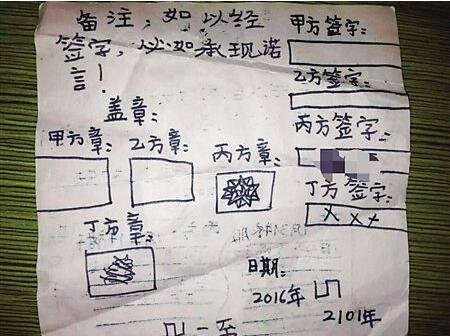 备注;如以经
签字,以如承现诺
言!
盖章:
甲方章:
乙方章:
丙方章:
丁方章:
甲方签字:
乙方签字:
丙方签字:
丁方签字:
×××
日期:
2016年
2101年
一至